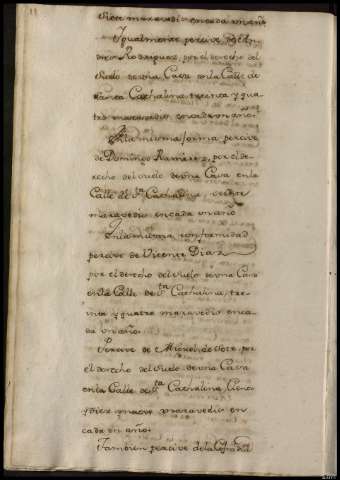 siete maravedis en cada un año
Igualmente percive de
Rodriguez, por el derecho del
Suelo de una Casa en la Calle de
Santa Cathalina, treinta y qua
tro maravedis en cada un año.
En la misma forma percive
de Domingo Ramirez, por el de
recho del suelo de una Casa en la
Calle de Sta. Cathalina
maravedis en cada un año
En la misma conformidad
percive de Vicente Diaz
por el derecho del Suelo de una Casa
en la Calle de Sta. Cathalina, tre
inta y quatro maravedis en ca
da un año.
Percive de Miguel de Soto, por
el derecho del Suelo de una Casa
en la Calle de Sta. Cathalina, Ciento
y diez y nueve maravedis en
cada un año.
Tambien percive de la